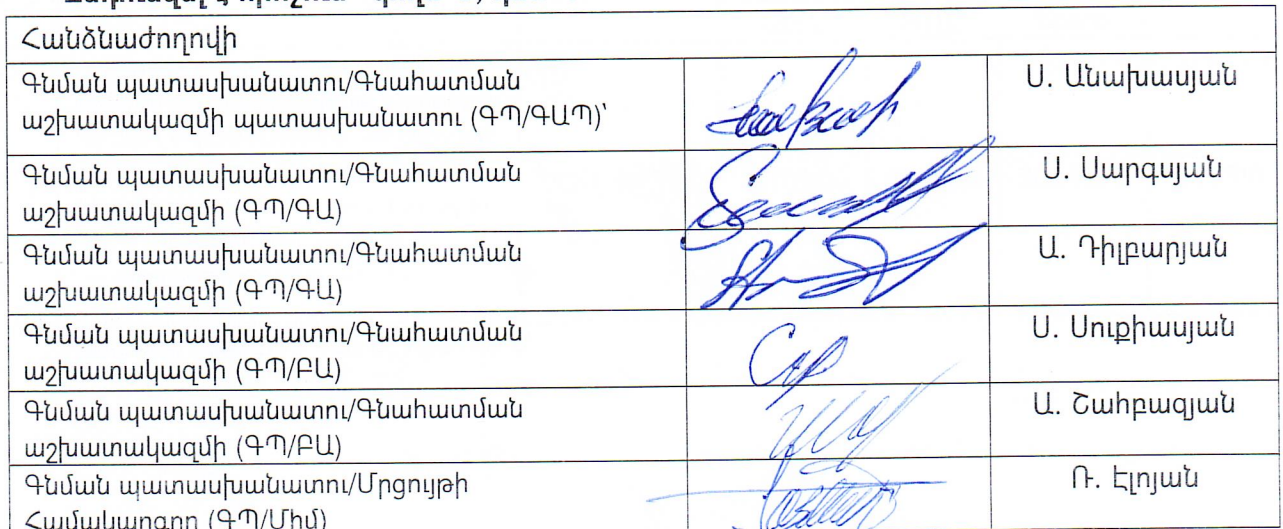 Հանձնաժողովի
Գնման պատասխանատու/Գնահատման
աշխատակազմի պատասխանատու (ԳՊ/ԳԱՊ)՝
Ս. Անախասյան
Գնման պատասխանատու/Գնահատման
աշխատակազմի (ԳՊ/ԳԱ)
Ս. Սարգսյան
Գնման պատասխանատու/Գնահատման
աշխատակազմի (ԳՊ/ԳԱ)
Ա. Դիլբարյան
Գնման պատասխանատու/Գնահատման
աշխատակազմի (ԳՊ/ԲԱ)
Ս. Սուքիասյան
Գնման պատասխանատու/Գնահատման
աշխատակազմի (ԳՊ/ԲԱ)
Ա. Շահբազյան
Գնման պատասխանատու/Մրցույթի
Համակարգող (ԳՊ/Միմ)
Ռ. Էլոյան